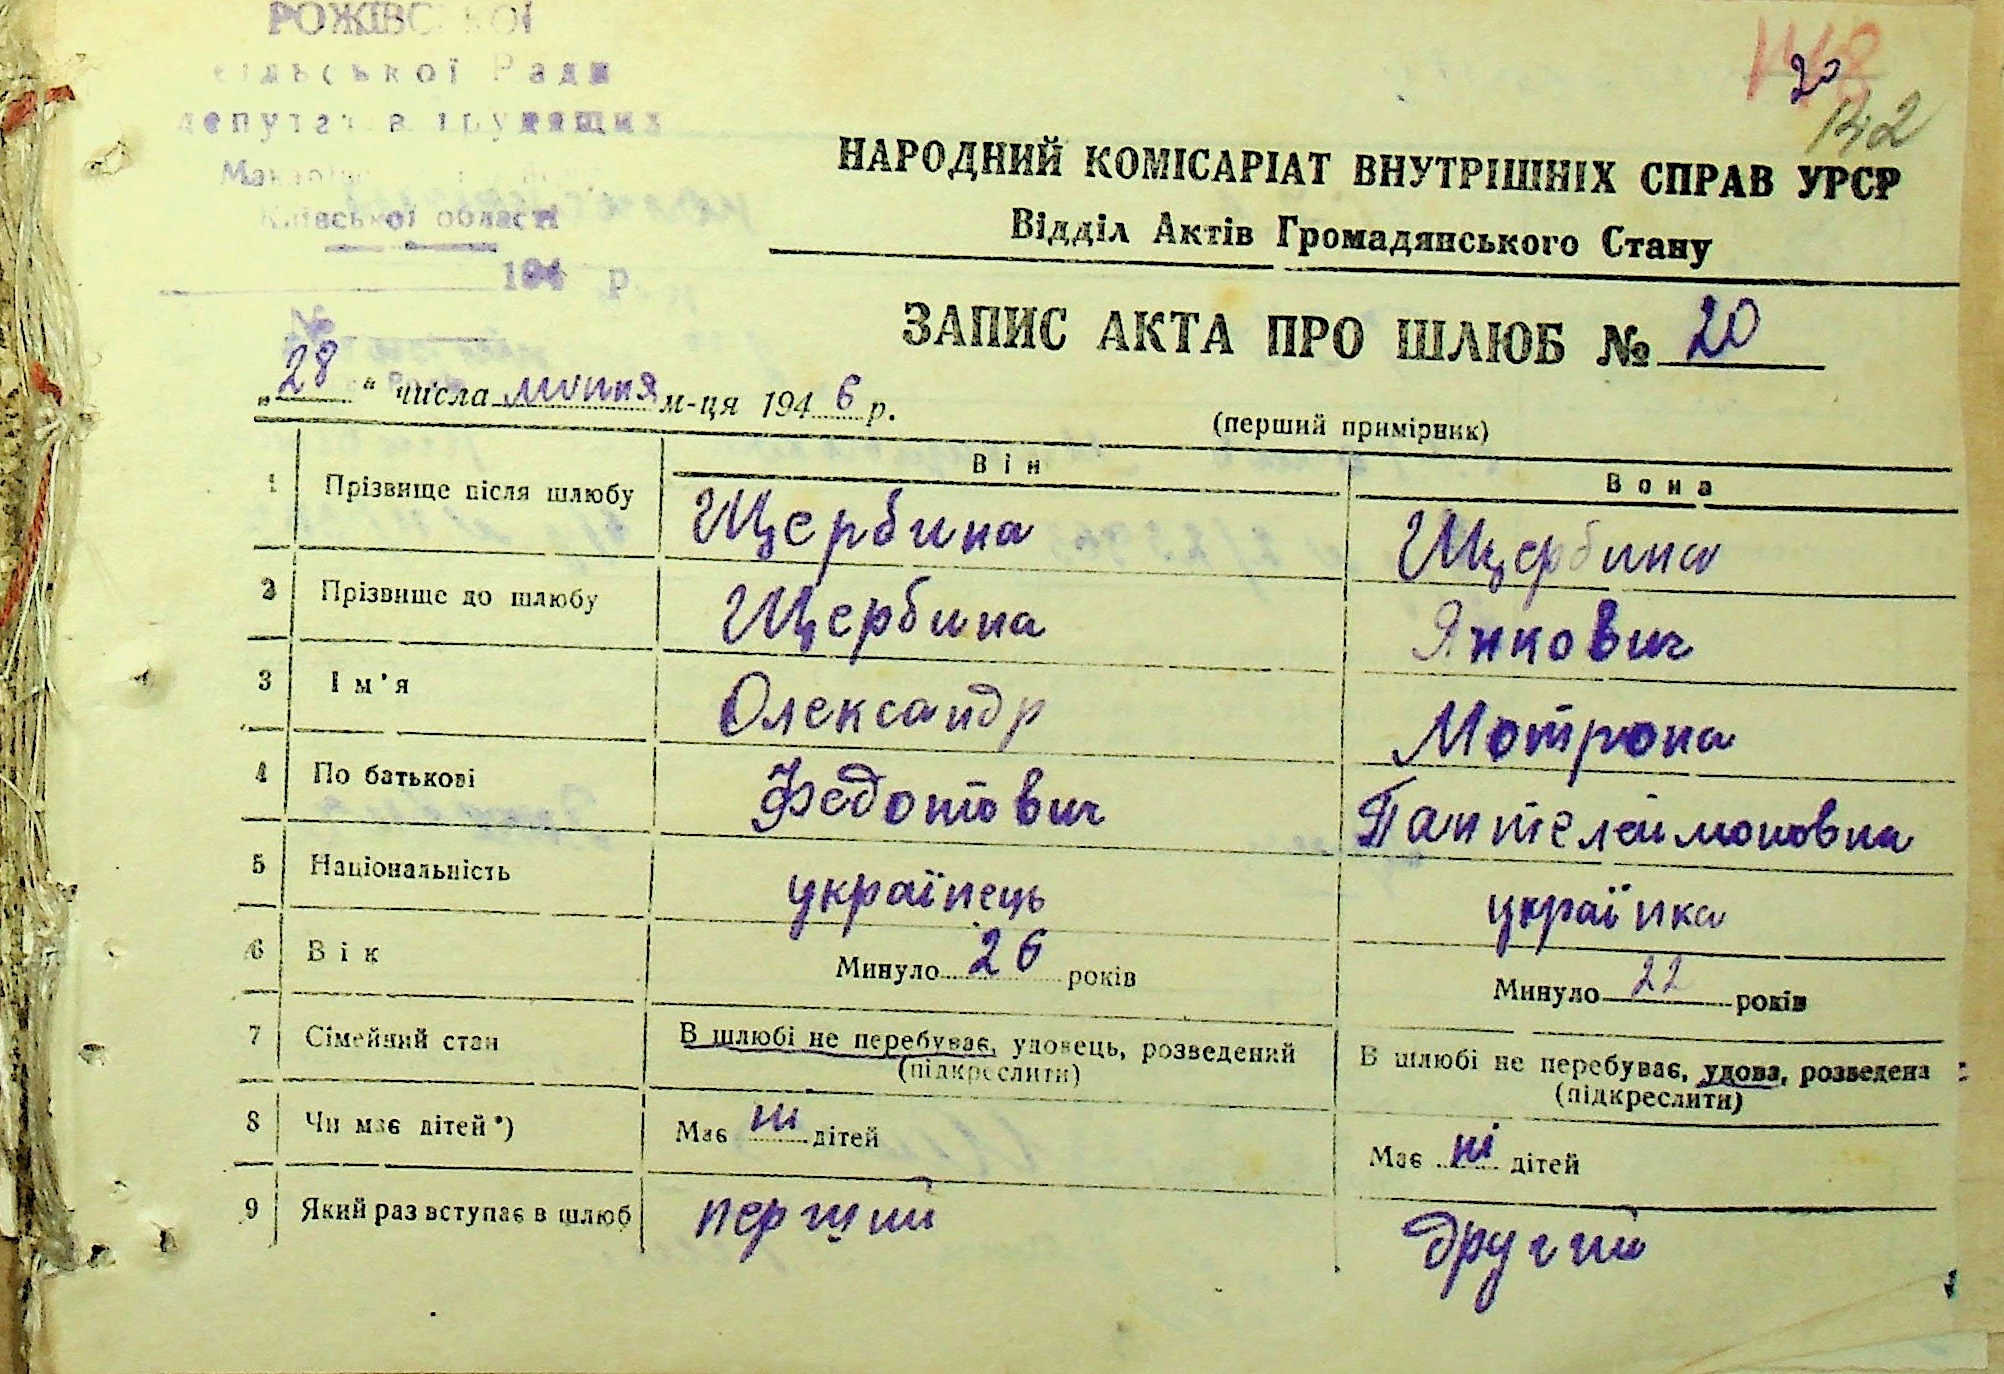 РОЖІВСЬКОЇ
сільської Ради
депутатів трудящих
Київської області
194 р.
№
20
НАРОДНИЙ КОМІСАРІАТ ВНУТРІШНІХ СПРАВ УРСР
Відділ Актів Громадянського Стану
ЗАПИС АКТА ПРО ШЛЮБ № 20
„28“ числа липня м-ця 1946 р.
(перший примірник)
Він Вона
1 Прізвище після шлюбу Щербина Щербина
2 Прізвище до шлюбу Щербина Янкович
3 Ім'я Олександр Мотрона
4 По батькові Федотович Пантелеймоновна
5 Національність українець українка
6 Вік Минуло 26 років Минуло 22 років
7 Сімейний стан В шлюбі не перебуває, удовець, розведений В шлюбі не перебуває, удова, розведена
(підкреслити) (підкреслити)
8 Чи має дітей*) Має ні дітей Має ні дітей
9 Який раз вступає в шлюб перший другий